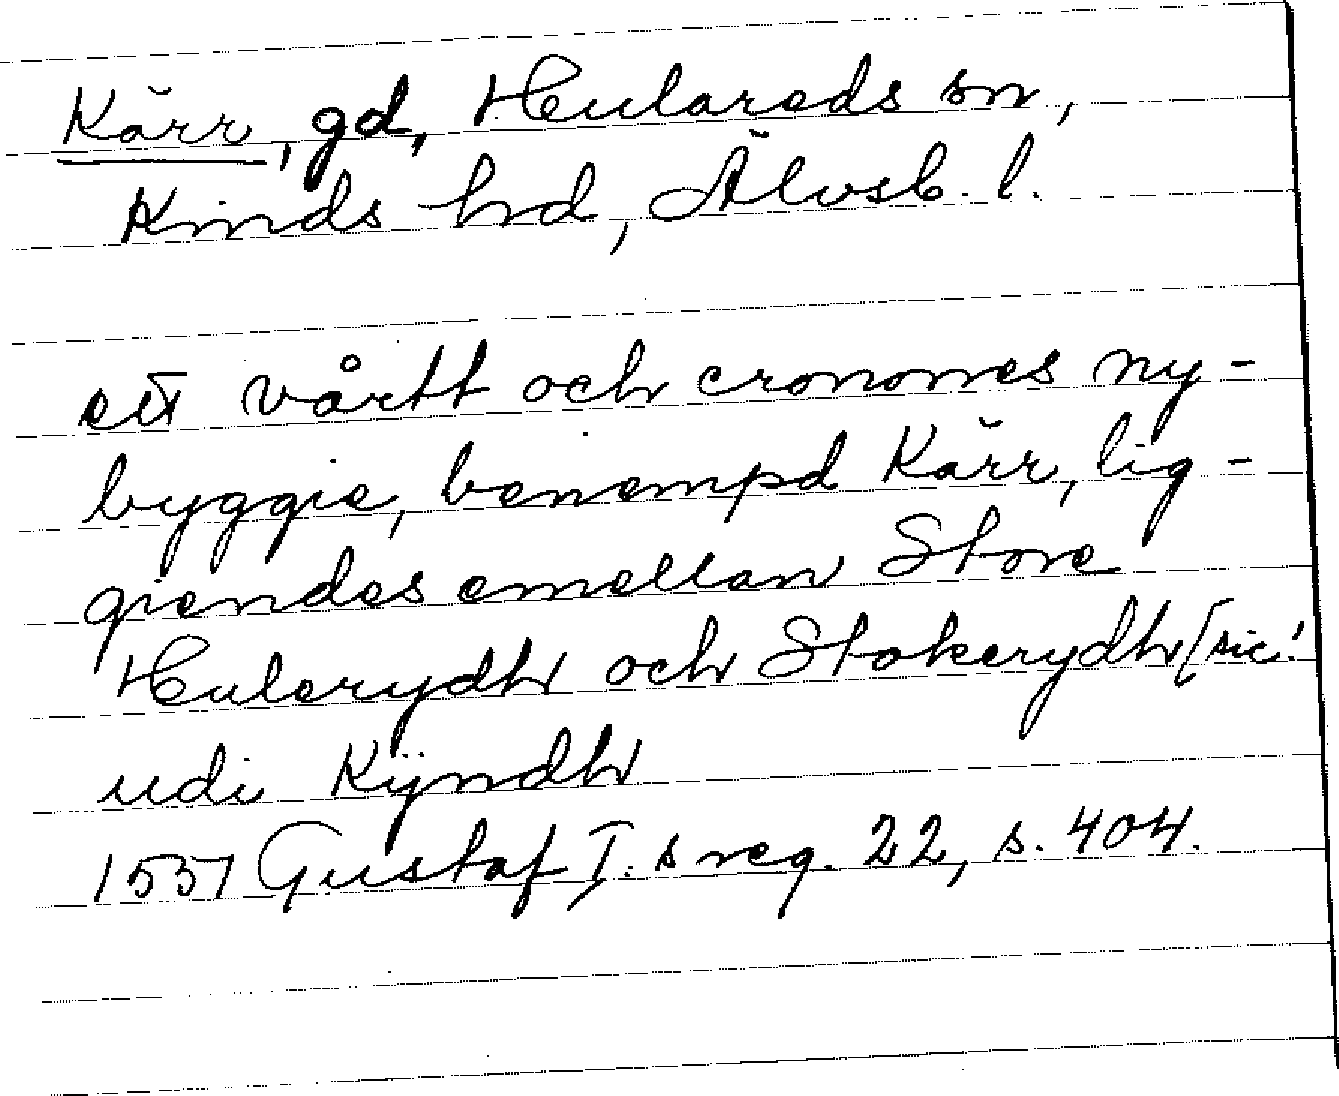 Kärr, gd, Hulareds sn,
Kinds hd, Älvsb. l.
ett vårtt och cronones ny-
byggie, benempd Kärr, lig-
giendes emellan Store
Hulerydh och Stokerydh [sic!
udi Kÿndh
1551 Gustaf I:s reg. 22, s. 404.